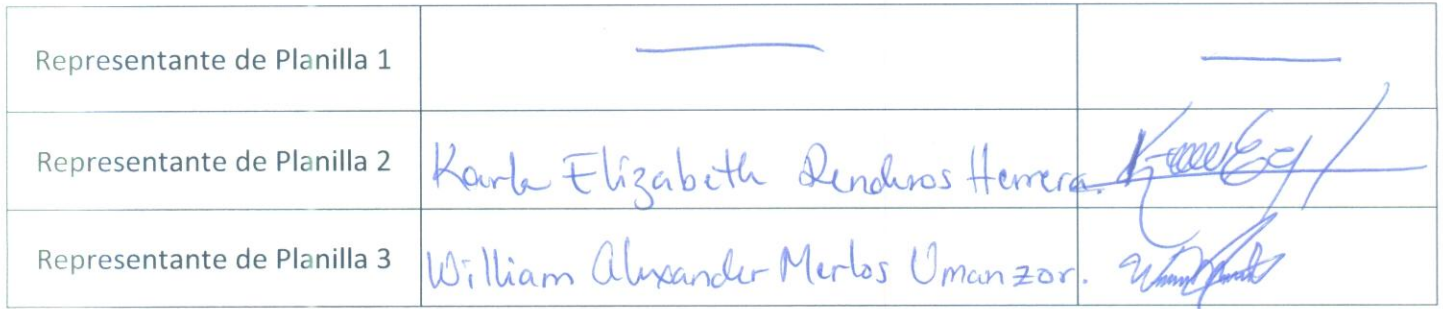 Representante de Planilla 1
Representante de Planilla 2 Karla Elizabeth Renderos Herrera.
Representante de Planilla 3 William Alexander Merlos Umanzor.